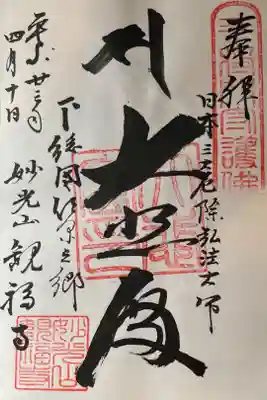 奉拝
日本三大厄除弘法大師
大悲殿
下総国佐原之郷
平成廿三年
四月十日
妙光山観福寺